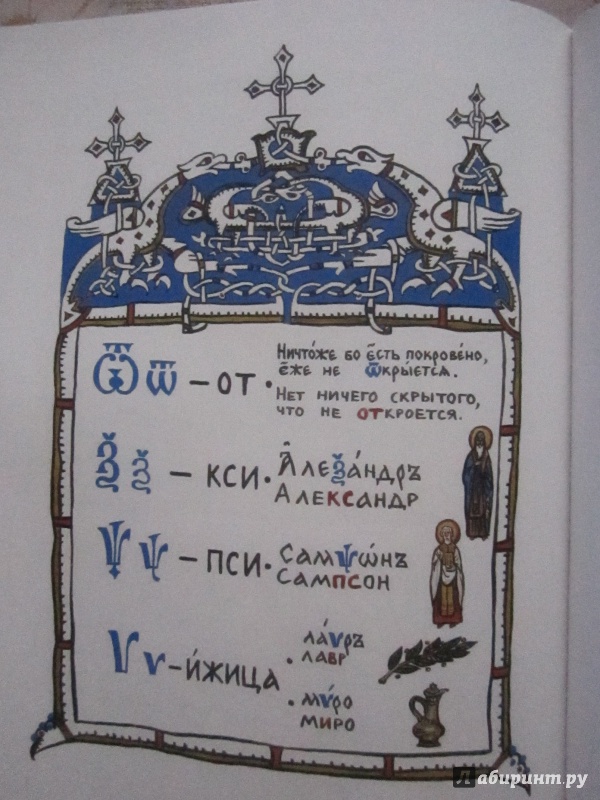 Ѿ ѿ – от • Ничто́же бо є҆́сть покрове́но,
є҆́же не ѿкры́ется.
Нет ничего скрытого,
что не откроется.
Ѯ ѯ – кси • А҆леѯа́ндръ
Александр
Ѱ ѱ – пси • Самѱѡ́нъ
Сампсон
Ѵ ѵ – и́жица • ла́ѵръ
лавр
• мѵ́ро
миро
Лабиринт.ру